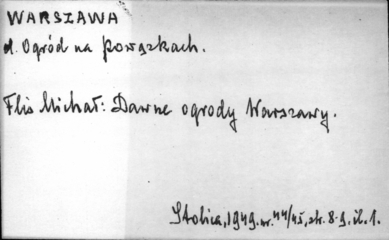 WARSZAWA
d. Ogród na Powązkach.
Flis Michał: Dawne ogrody Warszawy.
Stolica, 1949. nr. 44/45, str. 8-9, il. 1.